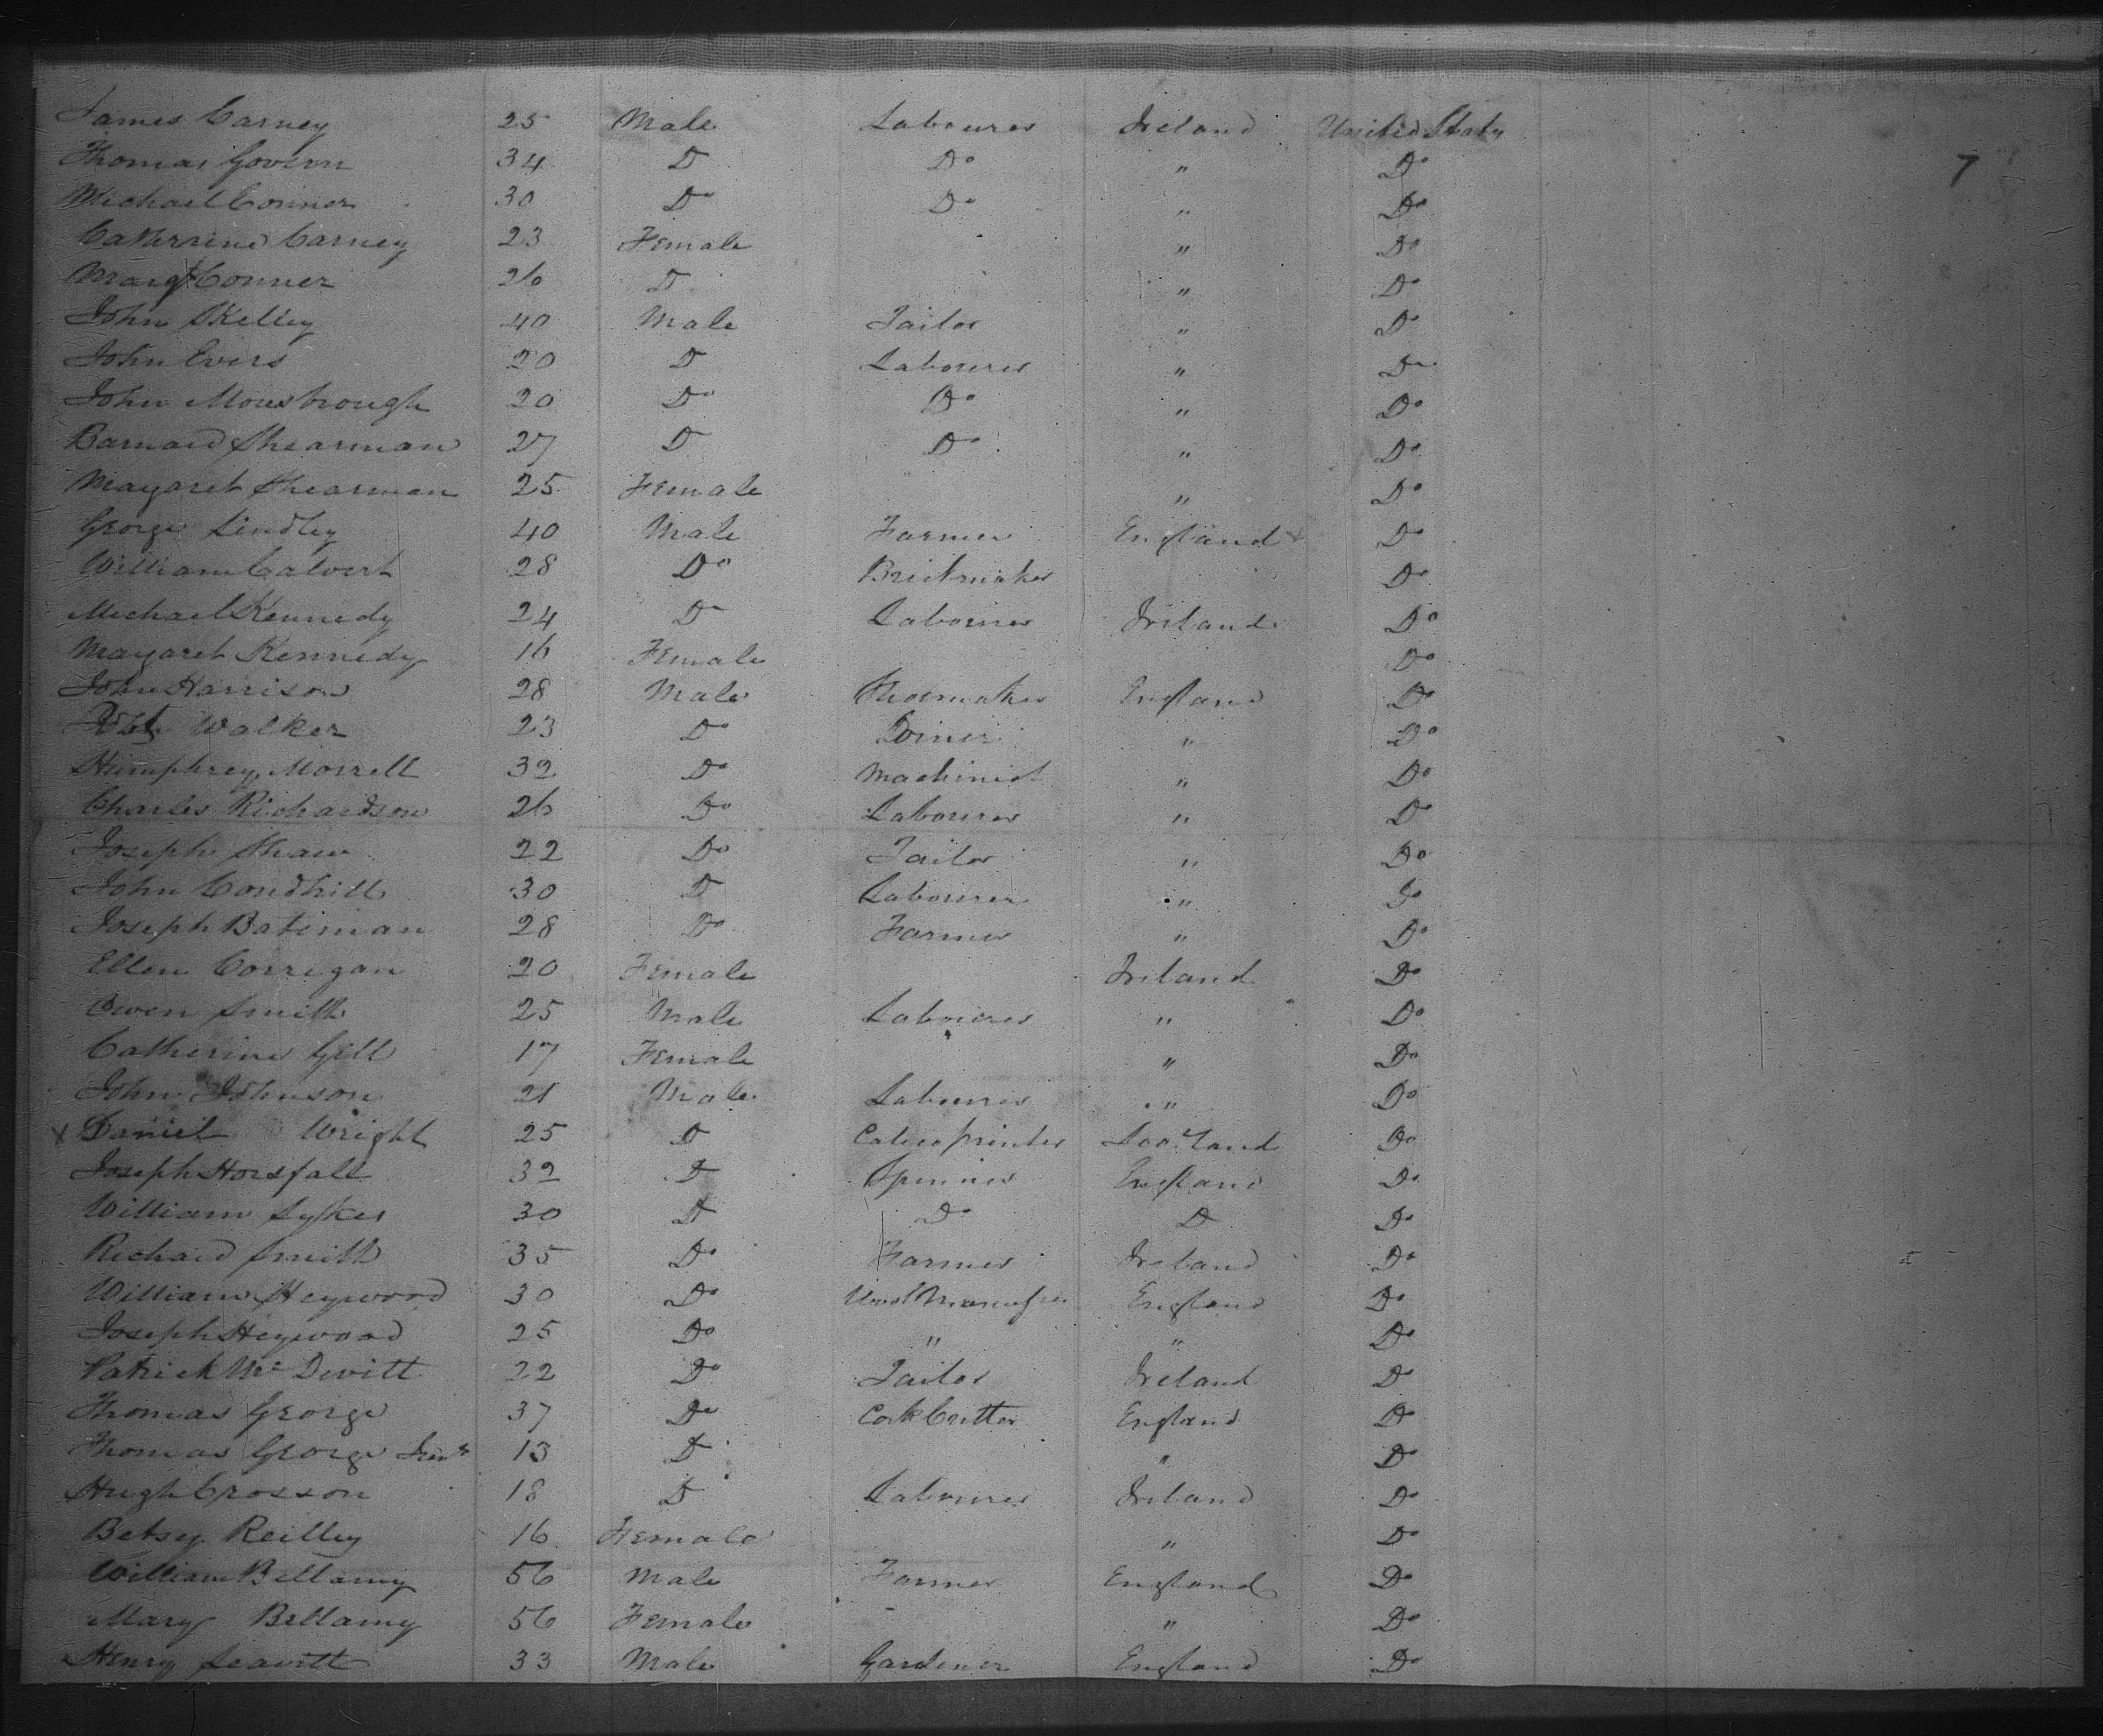 James Carney 25 Male Labourer Ireland United States
Thomas Govern 34 D Do " Do 7
Michael Conner 30 Do Do " Do
Catherine Carney 23 Female " Do
Margt Conner 26 D " Do
John Skelley 40 Male Tailor " Do
John Evers 20 D Labourer " Do
John Mousbrough 20 Do Do " Do
Barnard Shearman 27 D Do " Do
Magaret Shearman 25 Female " Do
George Lindley 40 Male Farmer England Do
William Calvert 28 Do Brickmaker Do
Michael Kennedy 24 D Labourer Ireland Do
Magaret Kennedy 16 Female Do
John Harrison 28 Male Shoemaker England Do
Walker 23 Do Joiner " Do
Humphrey Morrell 32 Do Machinist " Do
Charles Richardson 26 Do Labourer " D
Joseph Shaw 22 Do Tailor " Do
John Condhill 30 D Labourer " Do
Joseph Bateman 28 Do Farmer " Do
Ellen Corrigan 20 Female Ireland Do
Owen Smith 25 Male Labourer " Do
Catherine Gill 17 Female " Do
John Johnson 21 Male Labourer " Do
x Daniel Wright 25 D Calico printer Scotland Do
Joseph Horsfall 32 D Spinner England Do
William Sykes 30 D Do D Do
Richard Smith 35 Do Farmer Ireland Do
William Heywood 30 Do Wool England Do
Joseph Heywood 25 Do " " Do
Patrick Mc Devitt 22 Do Tailor Ireland Do
Thomas George 37 Do Cork Cutter England Do
Thomas George Junr 13 D " Do
Hugh Crosson 18 D Labourer Ireland Do
Betsey Reilley 16 Female " Do
William Bellamy 56 Male Farmer England Do
Mary Bellamy 56 Female " Do
Henry Leavitt 33 Male Gardener England Do